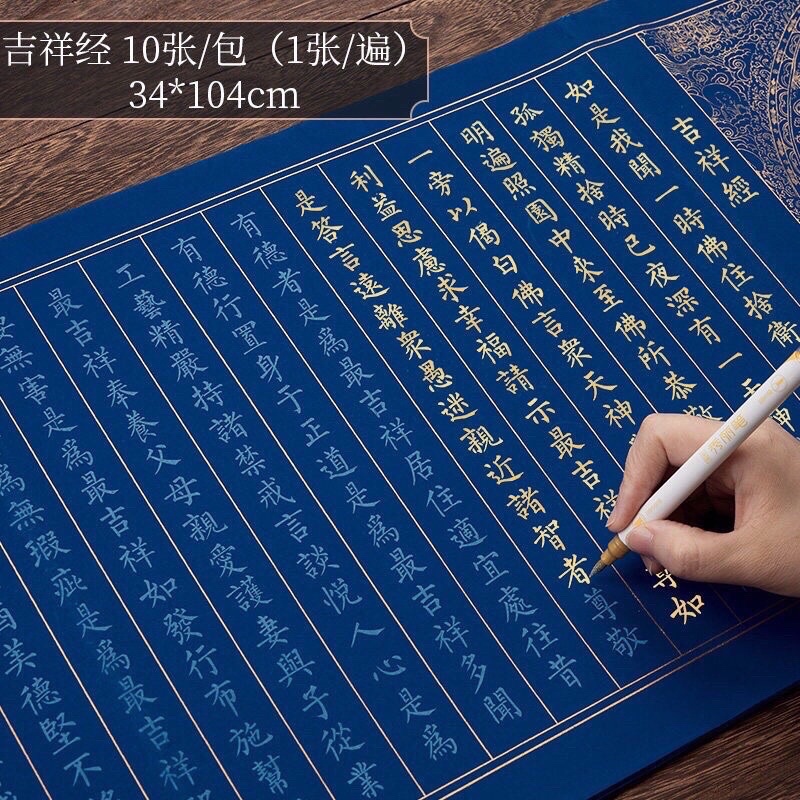 吉祥经 10张/包（1张/遍）
34*104cm
吉祥經
如是我聞一時佛住捨衛
孤獨精捨時已夜深有一
明遍照園中來至佛所恭敬
一旁以偈白佛言衆天神
利益思慮求幸福請示最吉祥尊如
是答言遠離衆愚迷親近諸智者尊敬
有德者是為最吉祥居住適宜處往昔
有德行置身于正道是為最吉祥多聞
工藝精嚴持諸禁戒言談悅人心是為
最吉祥奉養父母親愛護妻與子從業
無害是為最吉祥如發行布施幫
為無瑕疵是為最吉祥
美德堅不